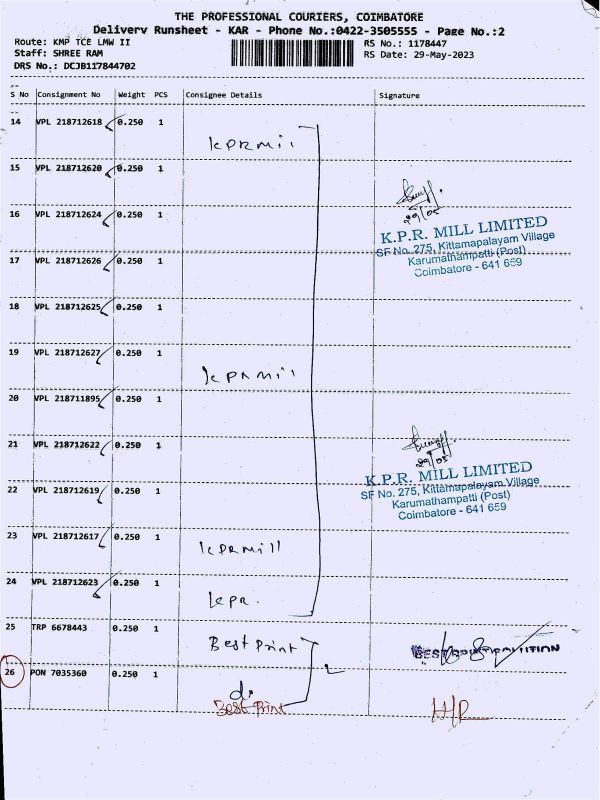 THE PROFESSIONAL COURIERS, COIMBATORE
Delivery Runsheet - KAR - Phone No.:0422-3505555 - Page No.:2
Route: KMP TCE LMW II RS No.: 1178447
Staff: SHREE RAM RS Date: 29-May-2023
DRS No.: DCJB117844702
S No Consignment No Weight PCS Consignee Details Signature
14 VPL 218712618 0.250 1
KPRMill
15 VPL 218712620 0.250 1
29/05
16 VPL 218712624 0.250 1
K.P.R. MILL LIMITED
SF No. 275, Kittamapalayam Village
Karumathampatti (Post)
Coimbatore - 641 659
17 VPL 218712626 0.250 1
18 VPL 218712625 0.250 1
19 VPL 218712627 0.250 1
KPRMill
20 VPL 218711895 0.250 1
21 VPL 218712622 0.250 1
29/05
K.P.R. MILL LIMITED
SF No. 275, Kittamapalayam Village
Karumathampatti (Post)
Coimbatore - 641 659
22 VPL 218712619 0.250 1
23 VPL 218712617 0.250 1
KPRMill
24 VPL 218712623 0.250 1
KPR.
25 TRP 6678443 0.250 1
Best Print
26 PON 7035360 0.250 1
Best Print